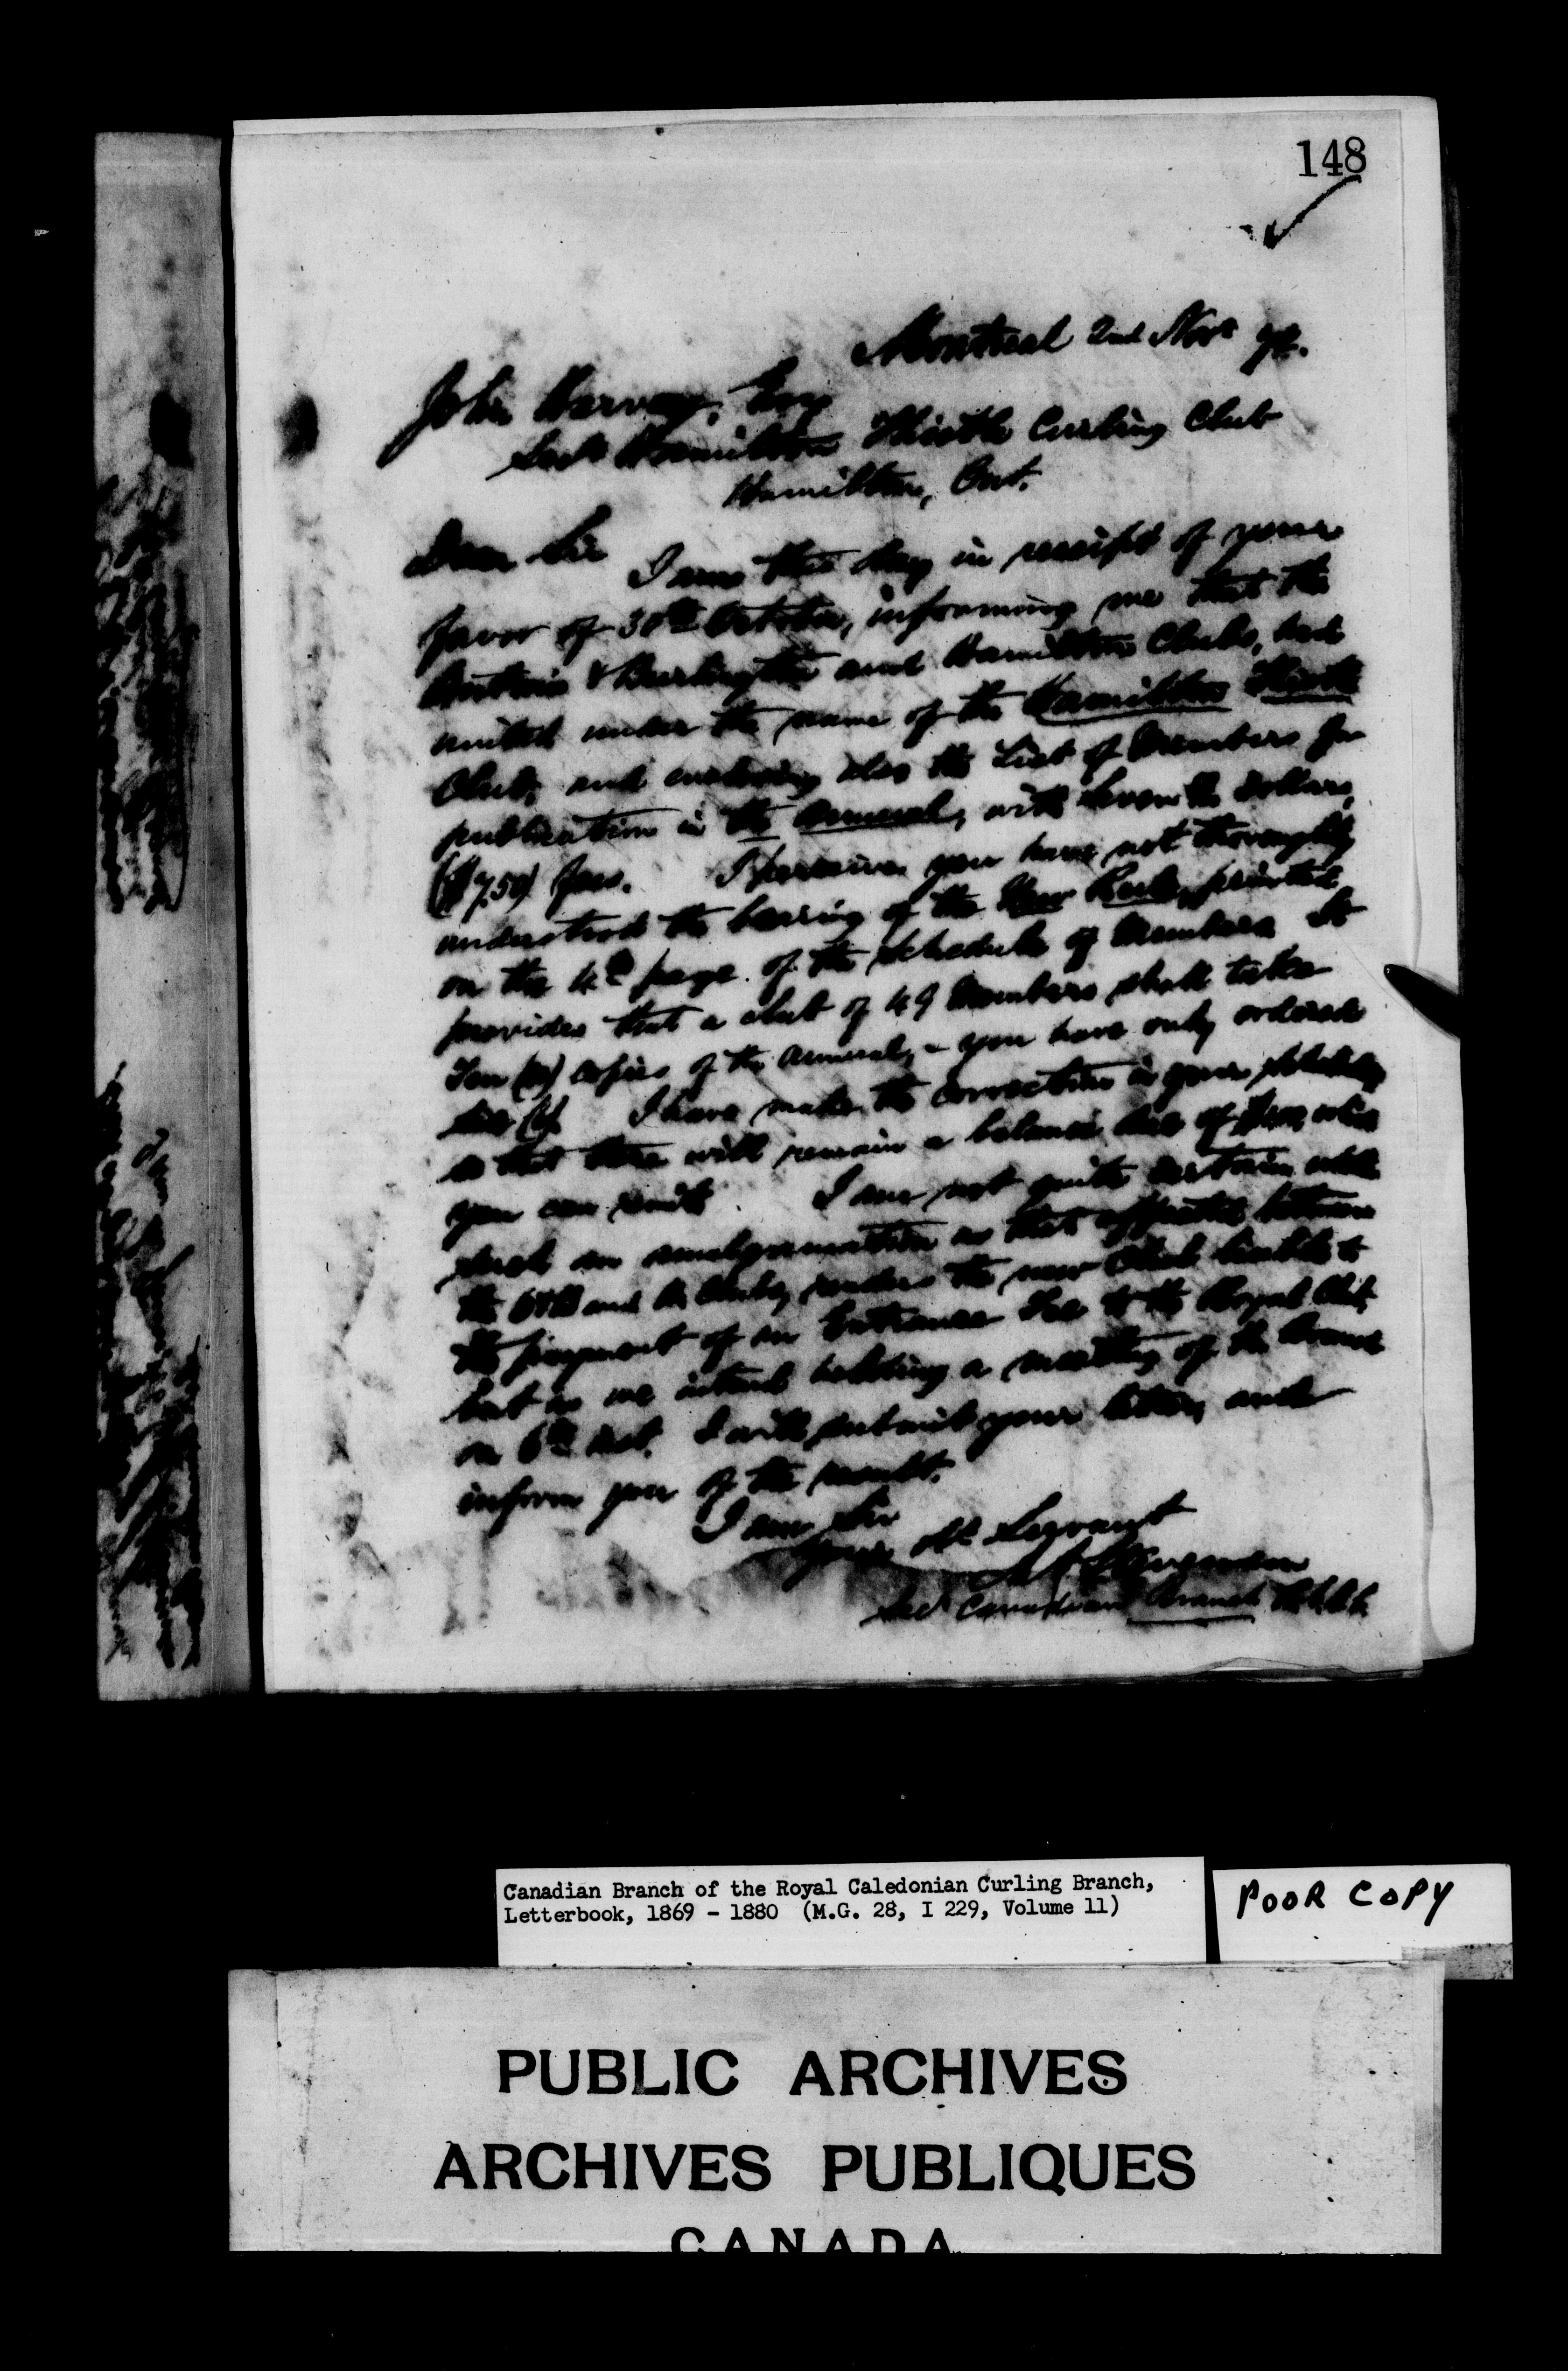 148
Montreal 2nd Nov
John Harvey, Esq
Secy Hamilton Thistle Curling Club
Hamilton, Ont.
Dear Sir
I am this day in receipt of your
favor of 30th October, informing me that the
Ontario & Burlington and Hamilton Clubs, had
united under the name of the Hamilton Thistle
Club, and enclosing also the List of Members for
publication in the Annual, with Seven dollars,
($7.50) fees. I perceive you have not thoroughly
understood the bearing of the New Rule, printed
on the 4th page of the Schedule of Members It
provides that a club of 49 Members shall take
Ten (10) copies of the Annual, - you have only ordered
I have made the correction in your schedule,
so that there will remain a balance due of which
you can remit. I am not quite certain
such an amalgamation as that effected between
the and Clubs, renders the new Club liable to
the payment of an Entrance Fee to the Royal Club,
but as we intend holding a meeting of the Branch
on 6th inst. I will submit your letter, and
inform you of the result.
I am Sir
Your Servant
Secy Canadian Branch R.C.C.C.
Canadian Branch of the Royal Caledonian Curling Branch,
Letterbook, 1869 - 1880 (M.G. 28, I 229, Volume 11)
POOR COPY
PUBLIC ARCHIVES
ARCHIVES PUBLIQUES
CANADA